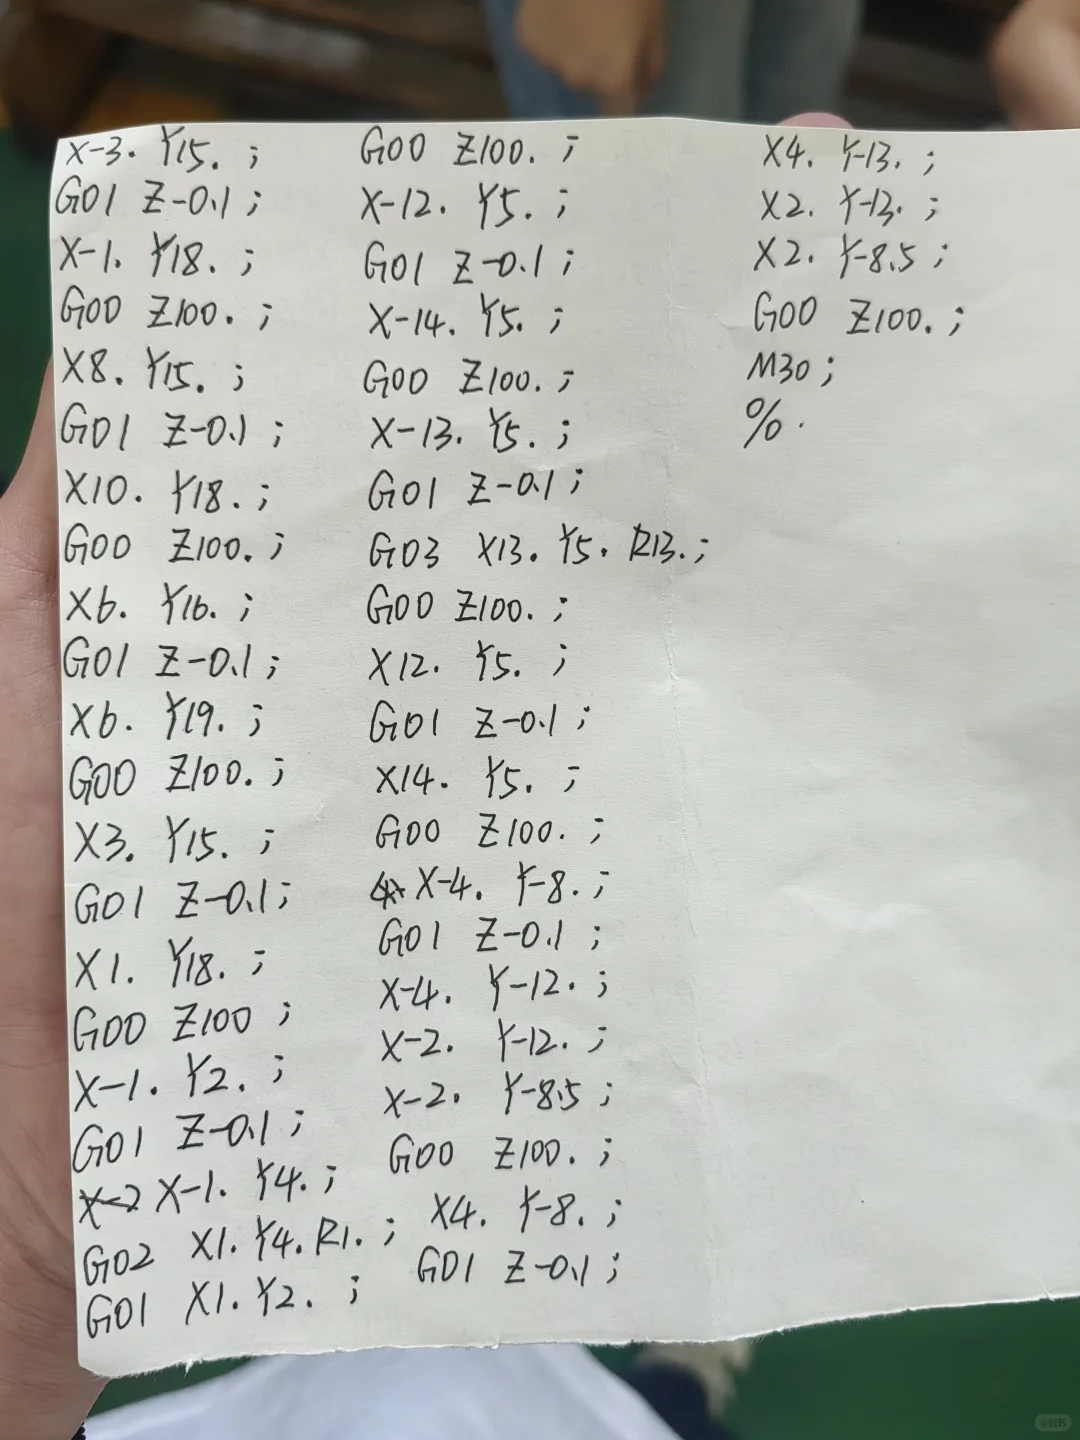 X-3. Y15. ;
G01 Z-0.1 ;
X-1. Y18. ;
G00 Z100. ;
X8. Y15. ;
G01 Z-0.1 ;
X10. Y18. ;
G00 Z100. ;
X6. Y16. ;
G01 Z-0.1 ;
X6. Y19. ;
G00 Z100. ;
X3. Y15. ;
G01 Z-0.1 ;
X1. Y18. ;
G00 Z100 ;
X-1. Y2. ;
G01 Z-0.1 ;
X-2 X-1. Y4. ;
G02 X1. Y4. R1. ;
G01 X1. Y2. ;
G00 Z100. ;
X-12. Y5. ;
G01 Z-0.1 ;
X-14. Y5. ;
G00 Z100. ;
X-13. Y5. ;
G01 Z-0.1 ;
G03 X13. Y5. R13. ;
G00 Z100. ;
X12. Y5. ;
G01 Z-0.1 ;
X14. Y5. ;
G00 Z100. ;
X-4. Y-8. ;
G01 Z-0.1 ;
X-4. Y-12. ;
X-2. Y-12. ;
X-2. Y-8.5 ;
G00 Z100. ;
X4. Y-8. ;
G01 Z-0.1 ;
X4. Y-13. ;
X2. Y-13. ;
X2. Y-8.5 ;
G00 Z100. ;
M30 ;
% .
小红书